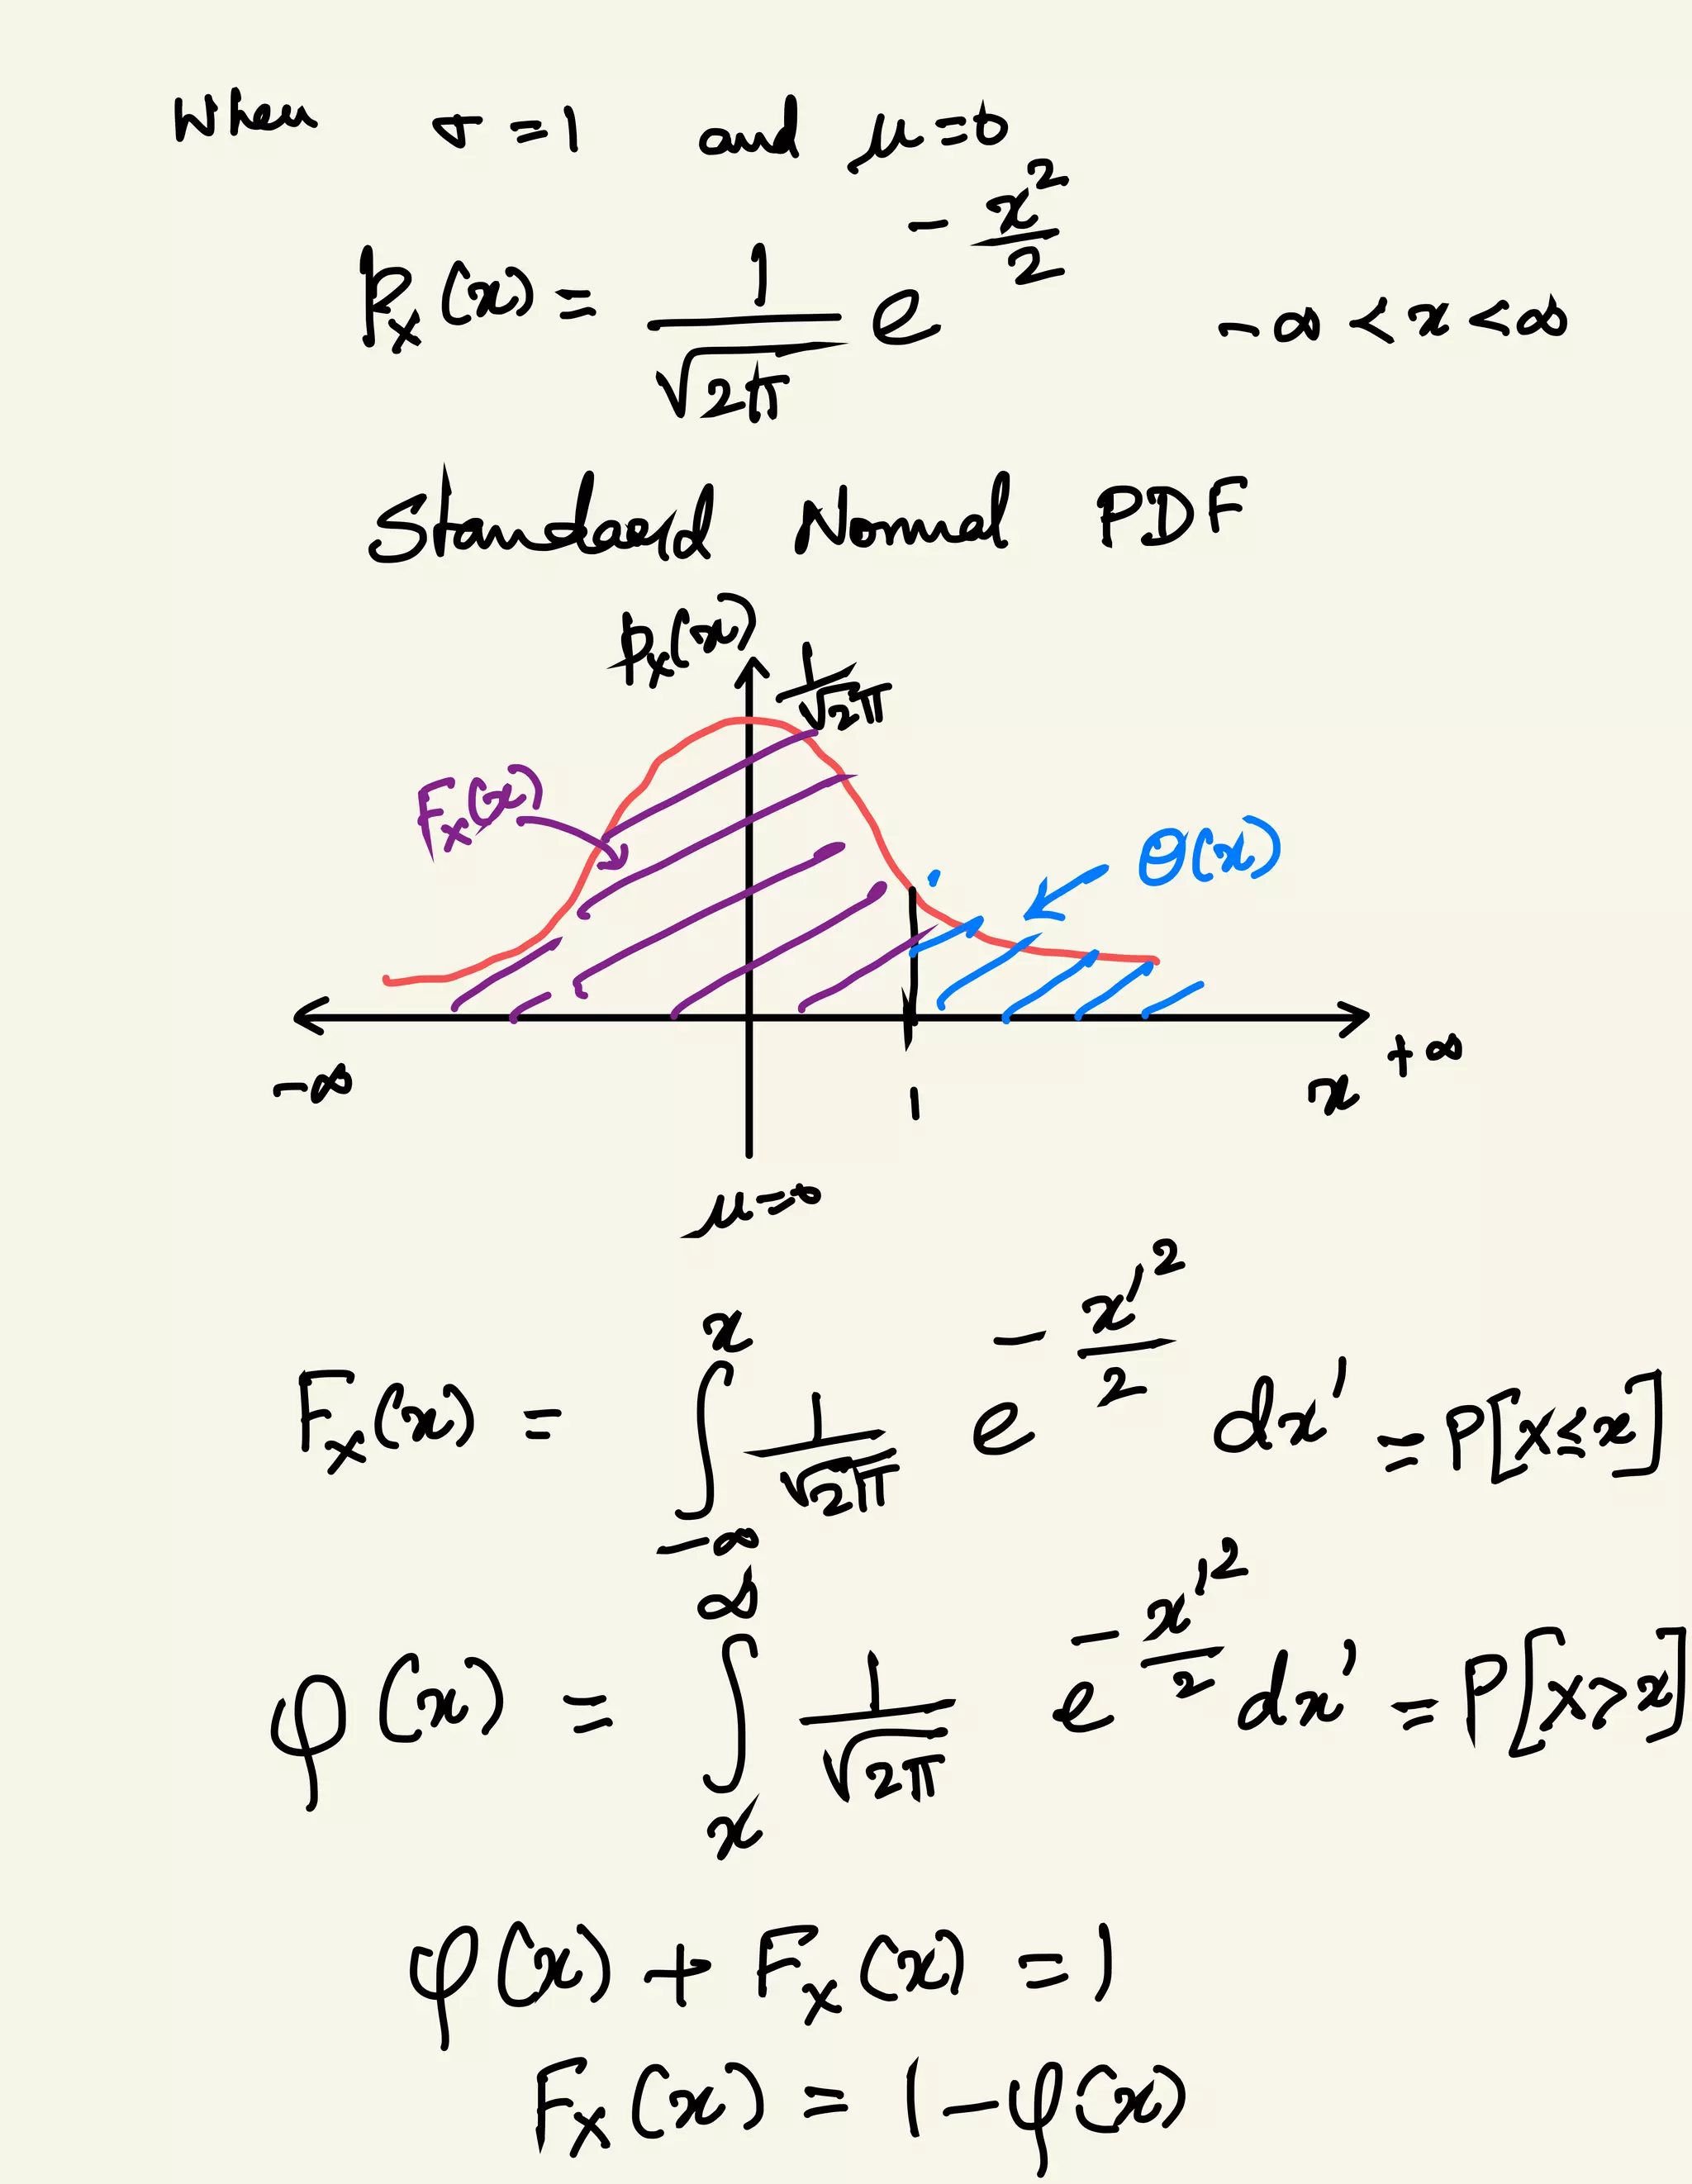 When σ = 1 and μ = 0
p_X(x) = 1/√2π e^(-x²/2) -∞ < x < ∞
Standard Normal PDF
p_X(x)
1/√2π
F_X(x)
Θ(x)
-∞
1
x
+∞
μ = 0
F_X(x) = ∫_{-∞}^{x} 1/√2π e^(-x'²/2) dx' = P[X ≤ x]
φ(x) = ∫_{x}^{∞} 1/√2π e^(-x'²/2) dx' = P[X > x]
φ(x) + F_X(x) = 1
F_X(x) = 1 - φ(x)